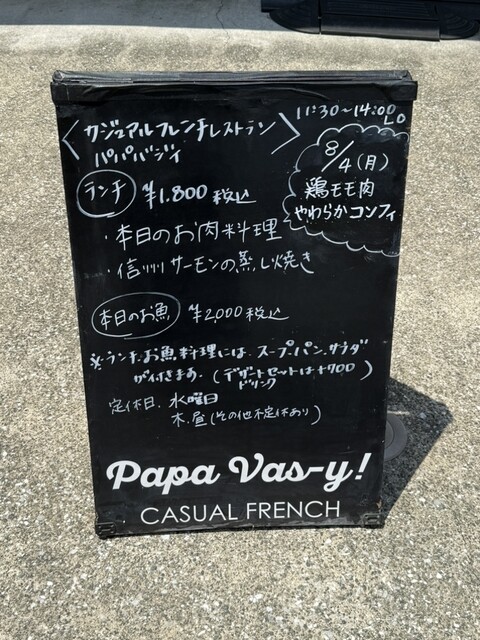 11:30~14:00 LO
〈カジュアルフレンチレストラン〉
パパバジイ
8/4(月)
鶏モモ肉
やわらかコンフィ
ランチ ¥1.800 税込
・本日のお肉料理
・信州サーモンの蒸し焼き
本日のお魚 ¥2,000 税込
※ランチ、お魚料理には、スープ、パン、サラダ
が付きます。(デザートセットは+700)
ドリンク
定休日、水曜日
木、昼(その他不定休あり)
Papa Vas-y!
CASUAL FRENCH